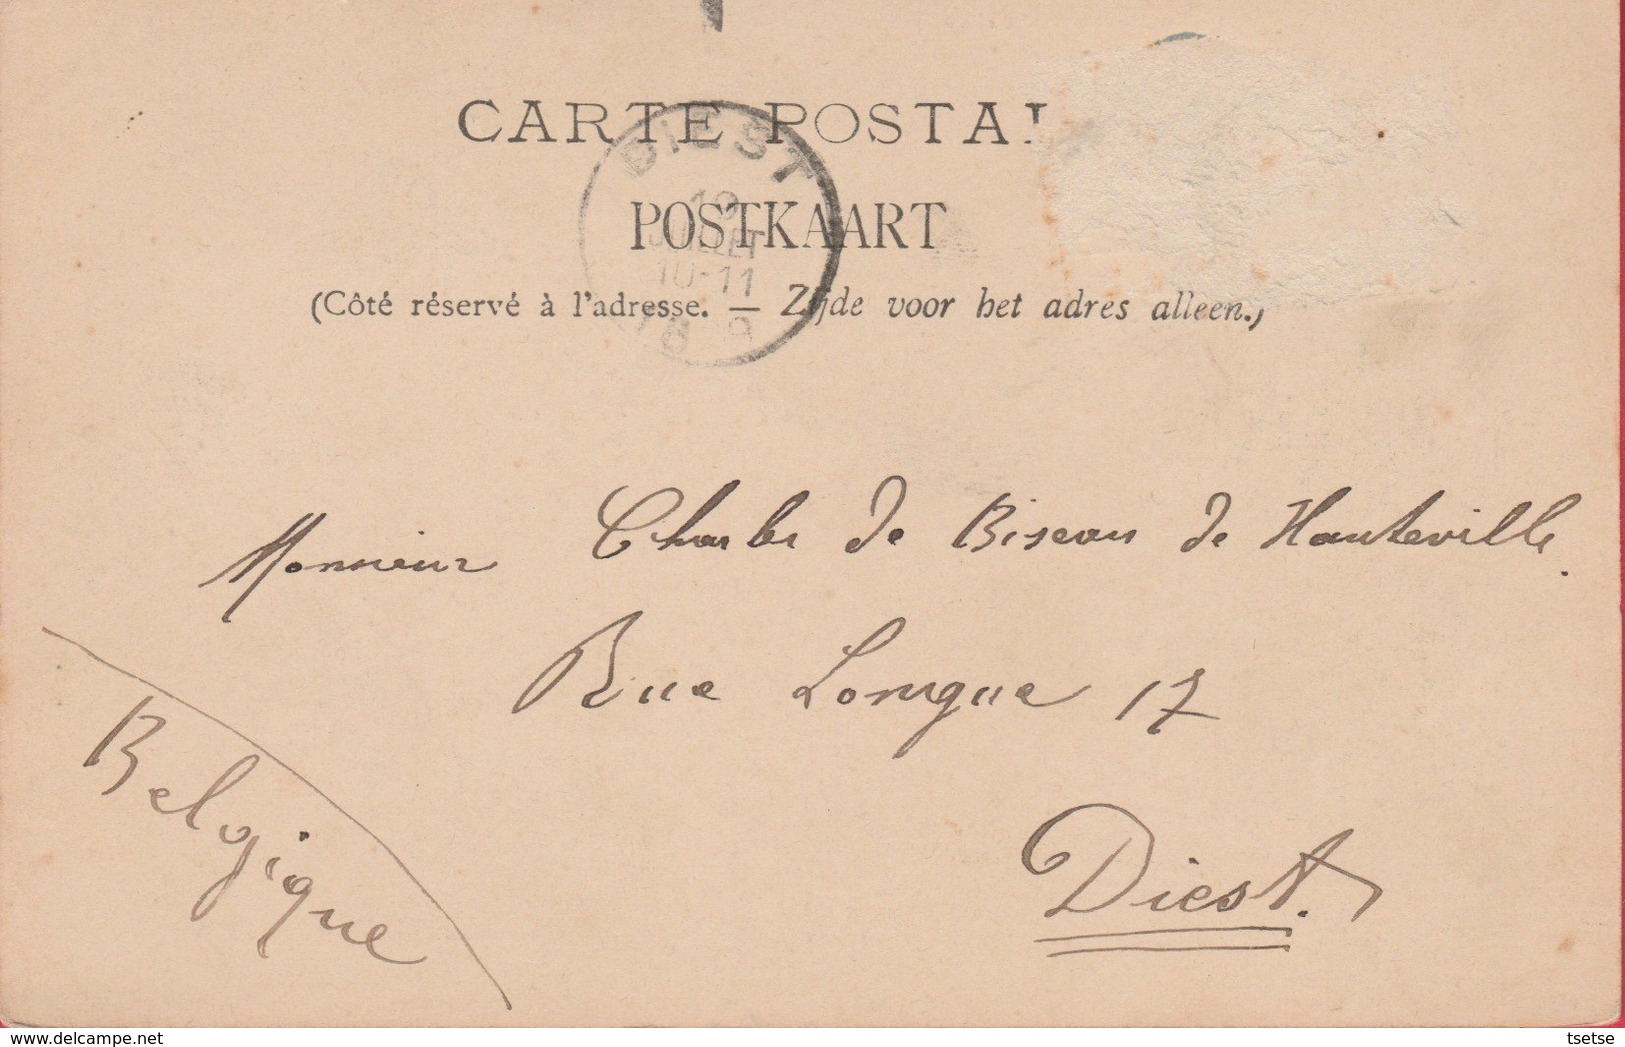 CARTE POSTAL
POSTKAART
(Côté réservé à l'adresse. — Zijde voor het adres alleen.)
DIEST
JUILLET
10-11
Monsieur Charles de Biseau de Hauteville.
Rue Longue 17
Diest.
Belgique
delcampe.net
tsetse